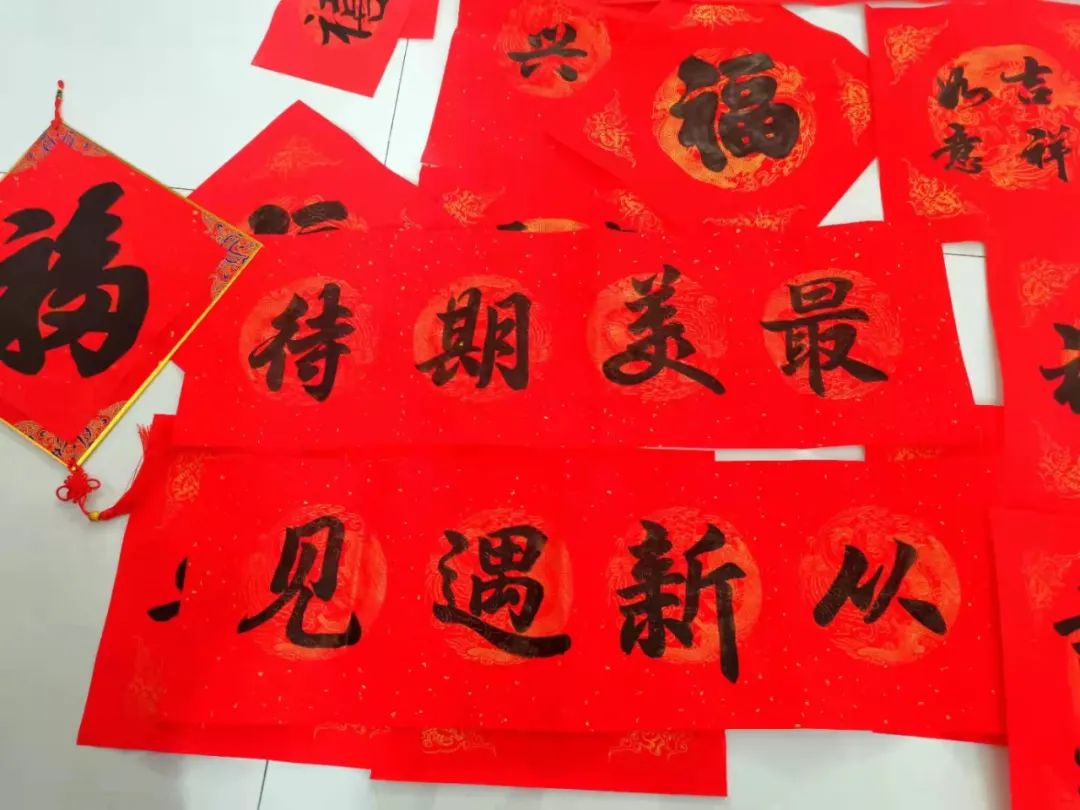 兴
福
吉祥
如意
福
最美期待
从新遇见